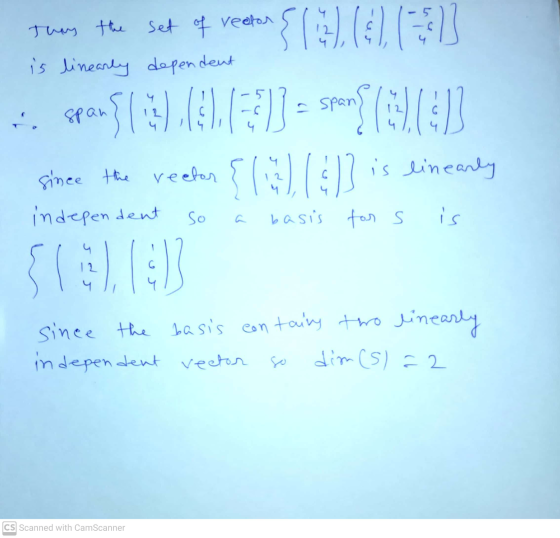 Thus the set of vector {(4 12 4), (1 6 4), (-5 -6 4)}
is linearly dependent
∴ span{(4 12 4), (1 6 4), (-5 -6 4)} = span{(4 12 4), (1 6 4)}
since the vector {(4 12 4), (1 6 4)} is linearly
independent so a basis for S is
{(4 12 4), (1 6 4)}
since the basis contains two linearly
independent vector so dim(S) = 2
CS Scanned with CamScanner